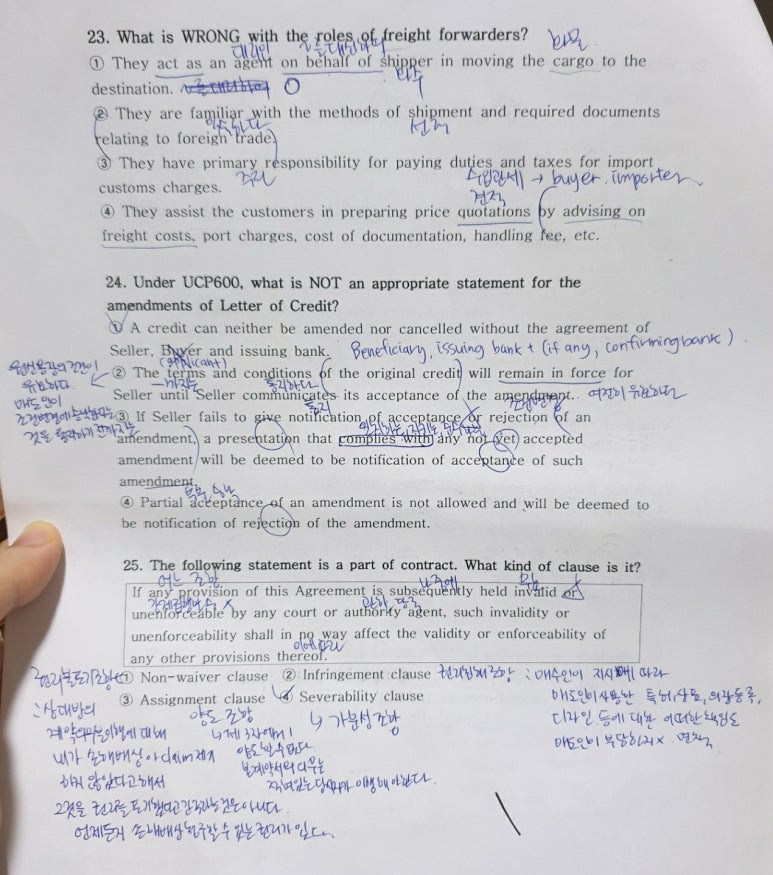 23. What is WRONG with the roles of freight forwarders?
대리인 ~을 대신하여 화물
① They act as an agent on behalf of shipper in moving the cargo to the
destination. O 화주
② They are familiar with the methods of shipment and required documents
익숙하다 선적
relating to foreign trade.
③ They have primary responsibility for paying duties and taxes for import
customs charges. 수입관세 → buyer. importer
견적
④ They assist the customers in preparing price quotations by advising on
freight costs, port charges, cost of documentation, handling fee, etc.
24. Under UCP600, what is NOT an appropriate statement for the
amendments of Letter of Credit?
① A credit can neither be amended nor cancelled without the agreement of
Seller, Buyer and issuing bank. Beneficiary, issuing bank + (if any, confirming bank).
(applicant)
② The terms and conditions of the original credit will remain in force for
~까지는 통지하다
Seller until Seller communicates its acceptance of the amendment. 여전히 유효하다
원신용장의 조건이
유효하다.
매도인이
조건변경에
것을 통지하기 전까지는
통지
③ If Seller fails to give notification of acceptance or rejection of an
amendment, a presentation that complies with any not yet accepted
amendment will be deemed to be notification of acceptance of such
amendment.
④ Partial acceptance of an amendment is not allowed and will be deemed to
be notification of rejection of the amendment.
25. The following statement is a part of contract. What kind of clause is it?
어느 조항 나중에 무효
If any provision of this Agreement is subsequently held invalid or
관할 당국
unenforceable by any court or authority agent, such invalidity or
unenforceability shall in no way affect the validity or enforceability of
any other provisions thereof.
권리불포기조항 ① Non-waiver clause ② Infringement clause 권리침해조항 : 매수인이 지시에 따라
③ Assignment clause ④ Severability clause 매도인이 사용한 특허, 상표, 의장등록,
: 상대방의 양도 조항 ↳ 가분성 조항 디자인 등에 대한 어떠한 책임도
계약의무불이행에 대해 ↳ 제3자에게 매도인이 부담하지 x 면책
내가 손해배상이나 claim 제기 양도할 수 없다.
하지 않았다고 해서 본계약서의 의무는
적혀있는 당사자가 이행해야한다.
그것을 권리를 포기했다고 간주하는 것은 아니다.
언제든지 손해배상 청구할 수 있는 권리가 있다.